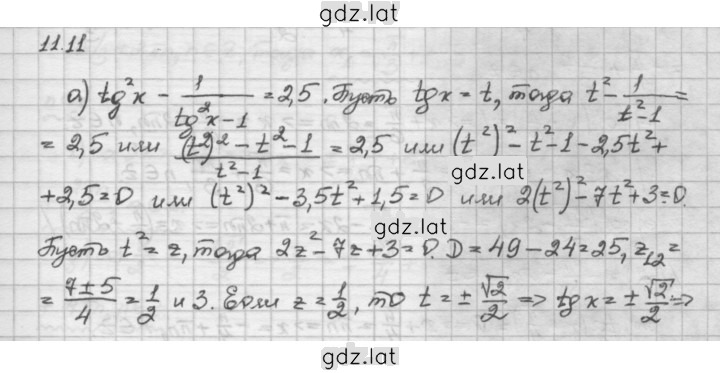 gdz.lat
11.11
а) tg²x - 1/(tg²x-1) = 2,5. Пусть tgx = t, тогда t² - 1/(t²-1) =
= 2,5 или ((t²)² - t² - 1)/(t²-1) = 2,5 или (t²)² - t² - 1 - 2,5t² +
gdz.lat
+ 2,5 = 0 или (t²)² - 3,5t² + 1,5 = 0 или 2(t²)² - 7t² + 3 = 0.
gdz.lat
Пусть t² = z, тогда 2z² - 7z + 3 = 0. D = 49 - 24 = 25, z₁₂ =
= (7±5)/4 = 1/2 и 3. Если z = 1/2, то t = ± √2/2 => tgx = ± √2/2 =>
gdz.lat
gdz.lat